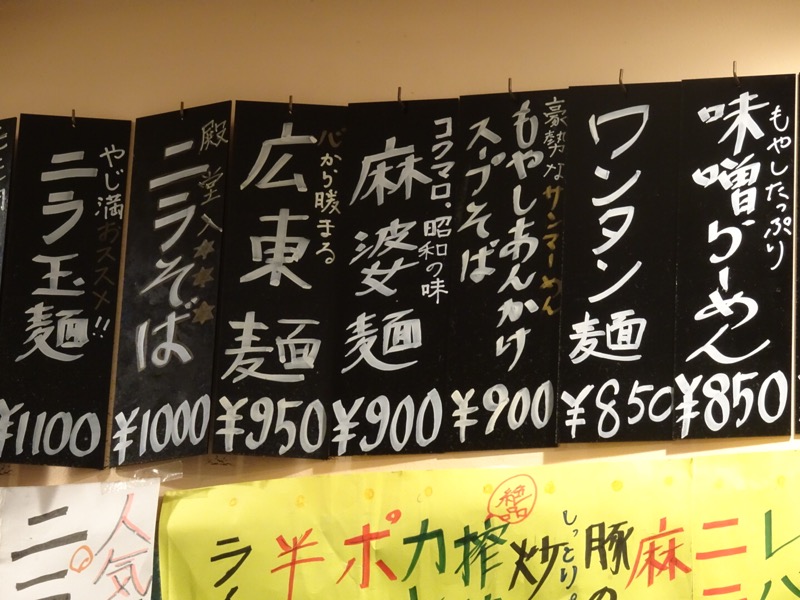 もやしたっぷり
味噌らーめん
¥850
ワンタン麺
¥850
豪勢なサンマーめん
もやしあんかけ
スープそば
¥900
コクマロ、昭和の味
麻婆麺
¥900
心から暖まる
広東麺
¥950
殿堂入
ニラそば
¥1000
やじ満おススメ!!
ニラ玉麺
¥1100
麻
豚の
しっとり
炒
絶品
搾
カ
ポ
半
ラ
人気